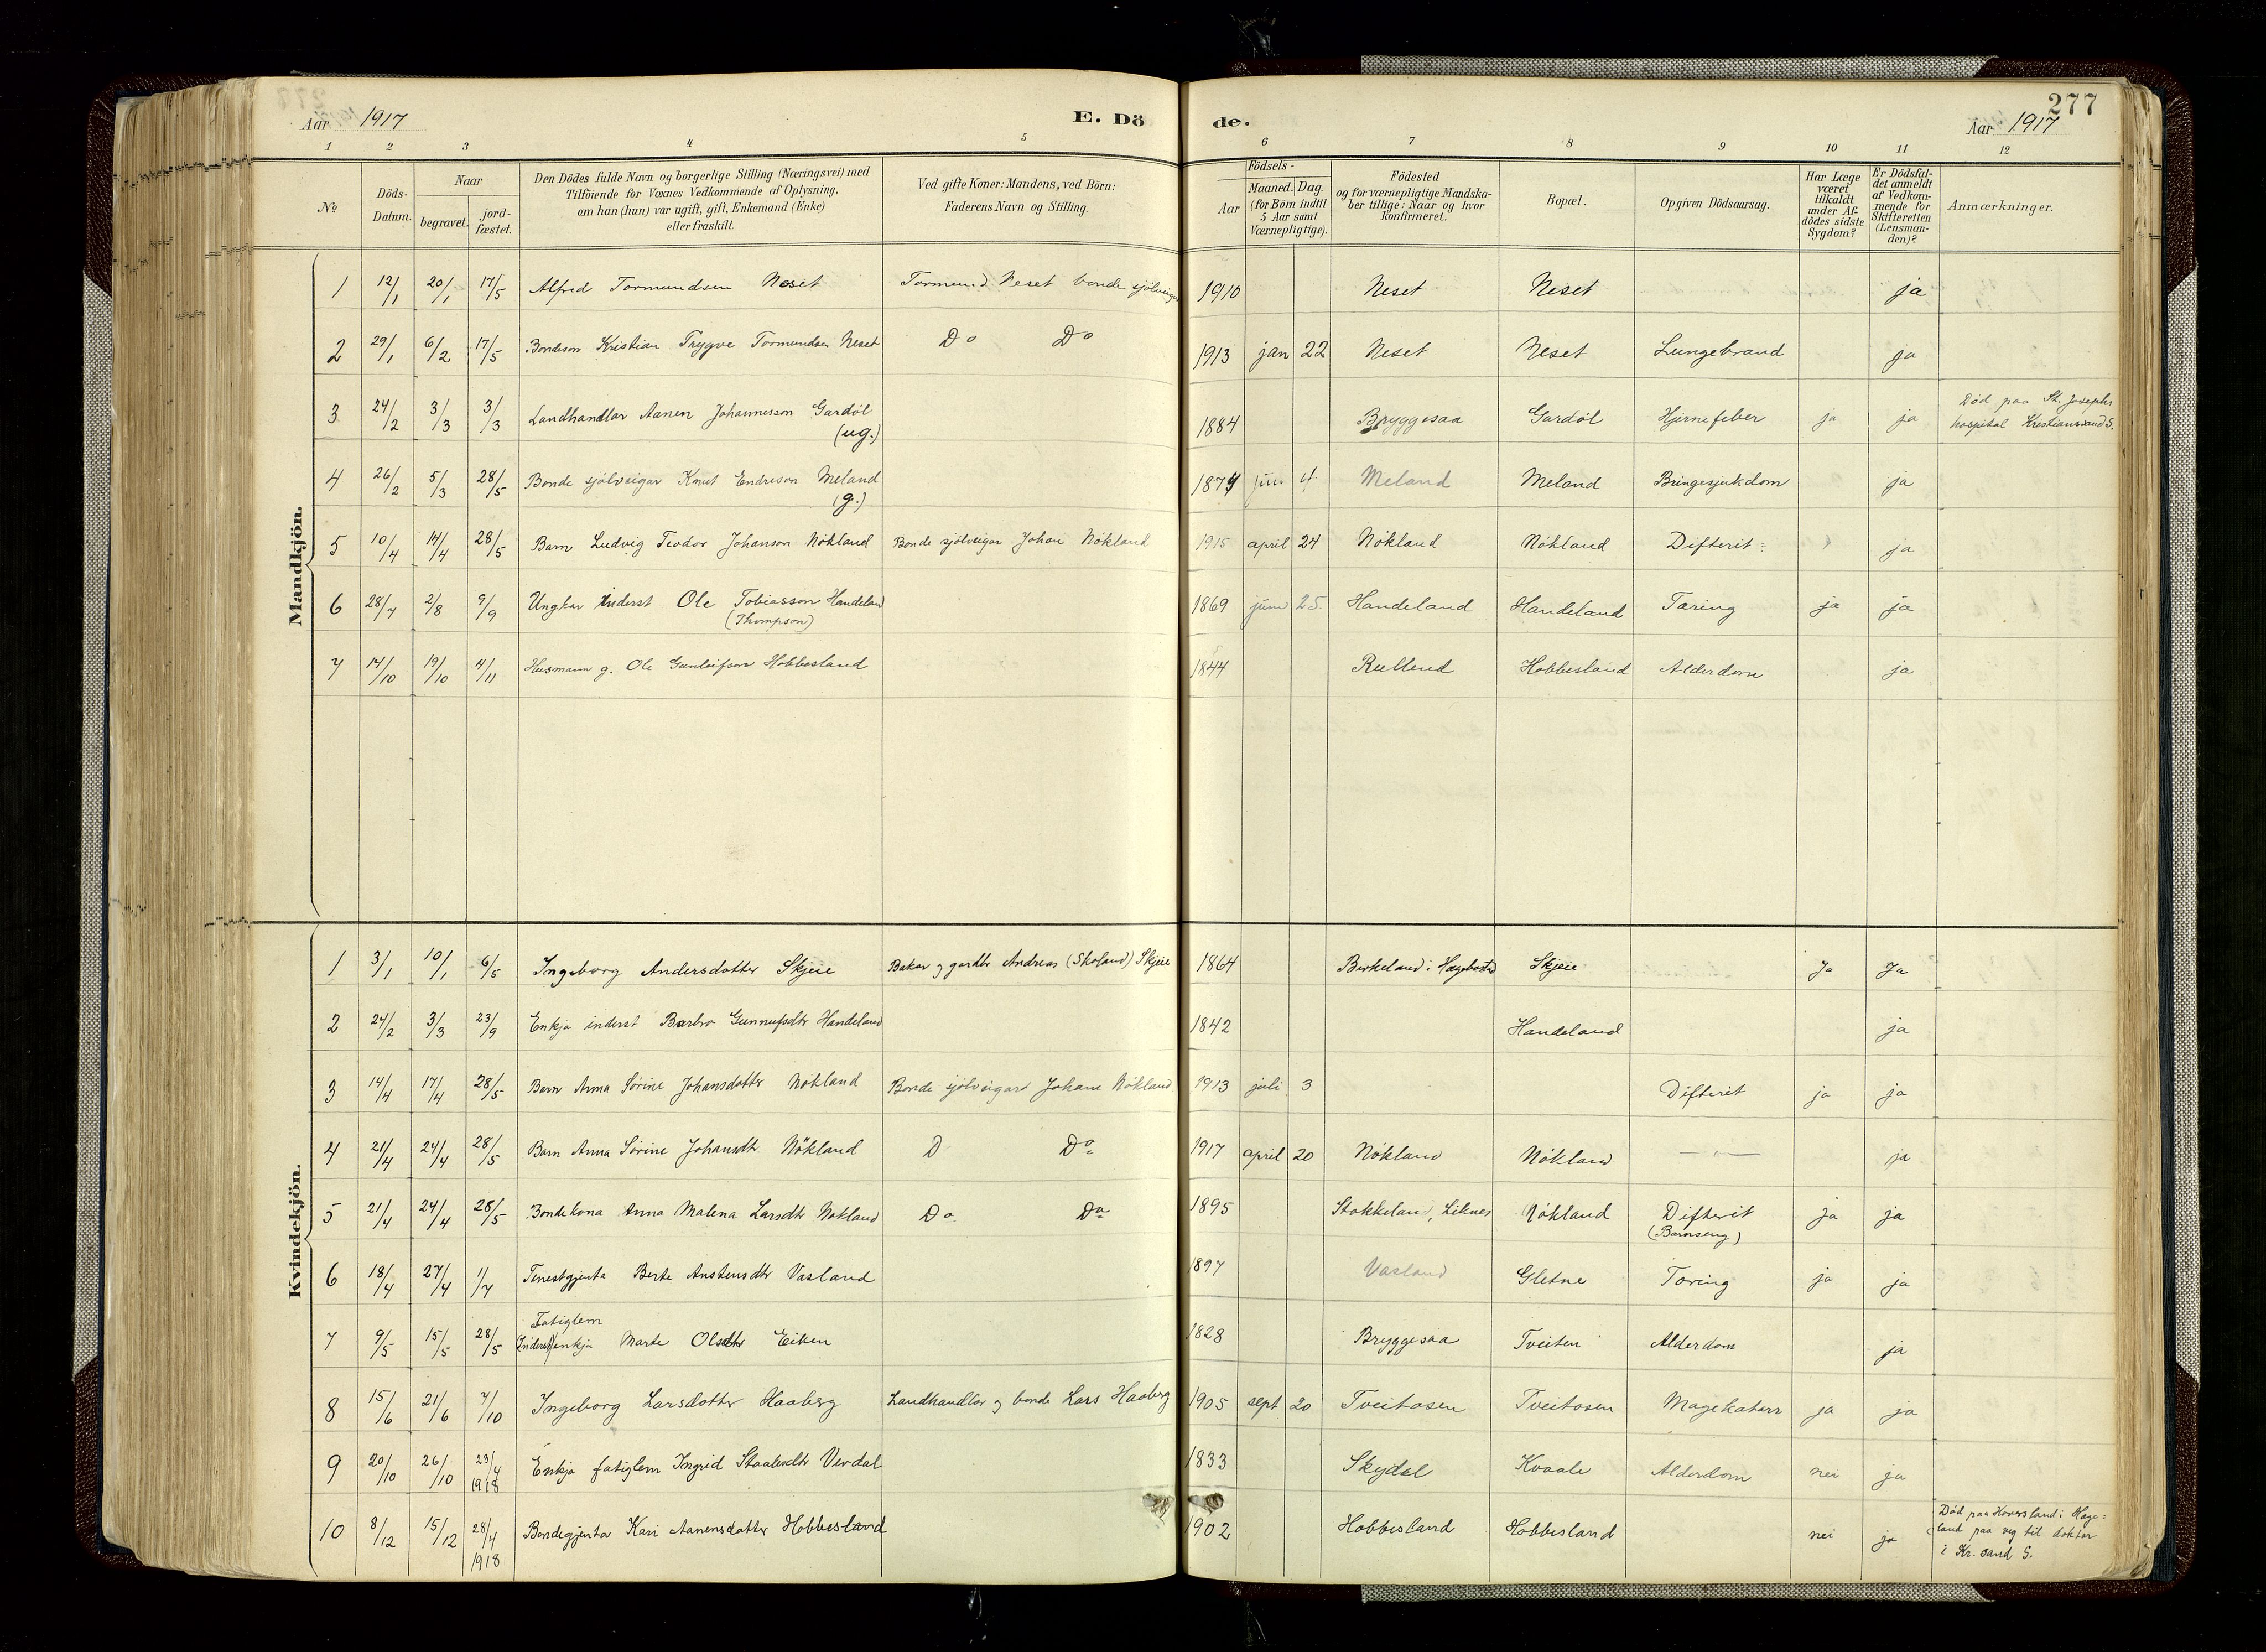 277
Aar 1917
E. Dö
de.
Aar 1917
1 2 3 4 5 6 7 8 9 10 11 12
No
Döds-Datum.
Naar
begravet.
jord-fæstet.
Den Dödes fulde Navn og borgerlige Stilling (Næringsvei) med
Tilföiende for Voxnes Vedkommende af Oplysning,
om han (hun) var ugift, gift, Enkemand (Enke)
eller fraskilt.
Ved gifte Koner: Mandens, ved Börn:
Faderens Navn og Stilling.
Födsels-
Aar
Maaned. Dag.
(for Börn indtil
5 Aar samt
Værnepligtige).
Födested
og for værnepligtige Mandska-
ber tillige: Naar og hvor
konfirmeret.
Bopæl.
Opgiven Dödsaarsag.
Har Læge
været
tilkaldt
under Af-
dödes sidste
Sygdom?
Er Dödsfal-
det anmeldt
af Vedkom-
mende for
Skifteretten
(Lensman-
den)?
Anmærkninger.
Mandkjön.
1 12/1 20/1 17/5 Alfred Tormundsen Neset Tormund Neset bonde sjölveigar 1910 Neset Neset ja
2 29/1 6/2 17/5 Bondeson Kristian Trygve Tormundsen Neset Do Do 1913 jan 22 Neset Neset Lungebrand ja
3 24/2 3/3 3/3 Landhandlar Aanen Johannesson Gardöl (ug.) 1884 Bryggesaa Gardöl Hjernefeber ja ja Död paa St. Josephs
hospital Kristianssand S.
4 26/2 5/3 28/5 Bonde sjölveigar Knut Endreson Meland (g.) 1874 juni 4 Meland Meland Bringesjukdom ja
5 10/4 14/4 28/5 Barn Ludvig Teodor Johanson Nökland Bonde sjölveigar Johan Nökland 1915 april 24 Nökland Nökland Difterit ja
6 28/7 2/8 9/9 Ungkar inderst Ole Tobiasson Handeland
(Thompson) 1869 juni 25 Handeland Handeland Tæring ja ja
7 14/10 19/10 4/11 Husmann g. Ole Gunleifson Hobbesland 1844 Rullend Hobbesland Alderdom ja
Kvindekjön.
1 3/1 10/1 6/5 Ingeborg Andersdotter Skjeie Bakar og gardbr Andreas (Skoland) Skjeie 1864 Birkeland i Hægebostad Skjeie Ja Ja
2 24/2 3/3 23/9 Enkja inderst Barbro Gunnufsdtr Handeland 1842 Handeland ja
3 14/4 17/4 28/5 Barn Anna Sörine Johansdotter Nökland Bonde sjölveigar Johan Nökland 1913 juli 3 Difterit ja ja
4 21/4 24/4 28/5 Barn Anna Sörine Johansdtr Nökland D Do 1917 april 20 Nökland Nökland — " — ja
5 21/4 24/4 28/5 Bondekona Anna Malena Larsdtr Nökland Do Do 1895 Stokkeland, Liknes Nökland Difterit
(Barnseng) ja ja
6 18/4 27/4 1/7 Tenestgjenta Berte Anstensdtr Vasland 1897 Vasland Gletne Tæring ja ja
Fatiglem
7 9/5 15/5 28/5 (Inderst) enkja Marte Olsdtr Eiken 1828 Bryggesaa Tveiten Alderdom ja
8 15/6 21/6 7/10 Ingeborg Larsdotter Haaberg Landhandlar og bonde Lars Haaberg 1905 sept 20 Tveitosen Tveitosen Magekatarr ja ja
9 20/10 26/10 23/4 1918 Enkja fatiglem Ingrid Staalesdtr Verdal 1833 Skejdel Kvaale Alderdom nei ja
10 8/12 15/12 28/4 1918 Bondegjenta Kari Aanensdotter Hobbesland 1902 Hobbesland Hobbesland nei ja Död paa Homesland i Hæge=
land paa veg til doktar
i Kr. sand S.